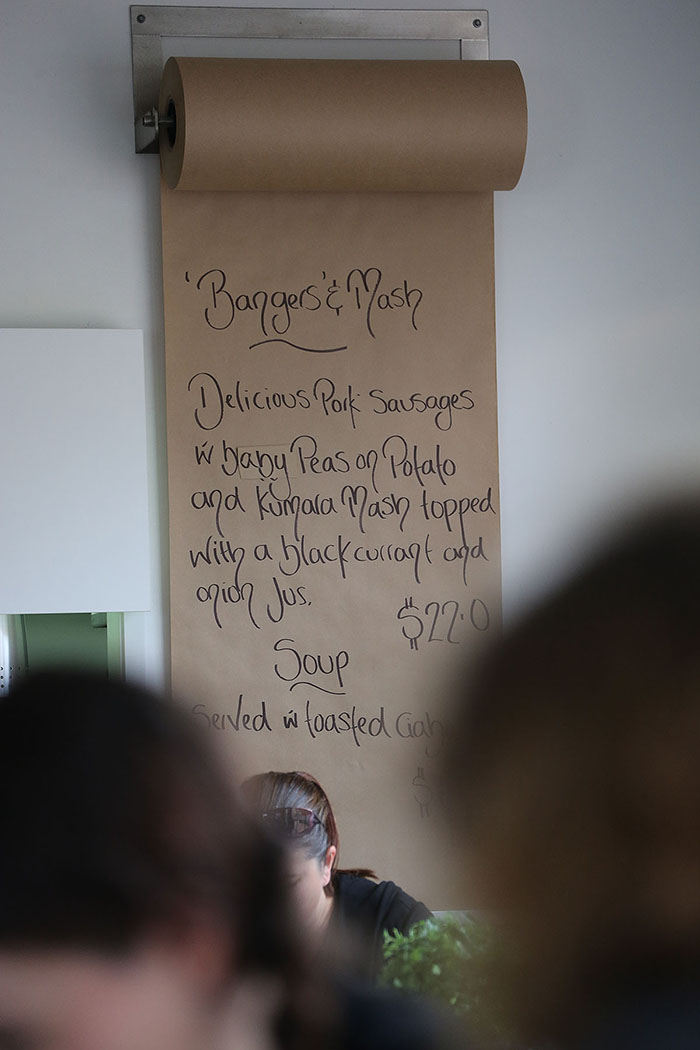 'Bangers' & Mash
Delicious Pork Sausages
w baby Peas on Potato
and Kumara Mash topped
with a blackcurrant and
onion Jus.
$22.0
Soup
Served w toasted
$